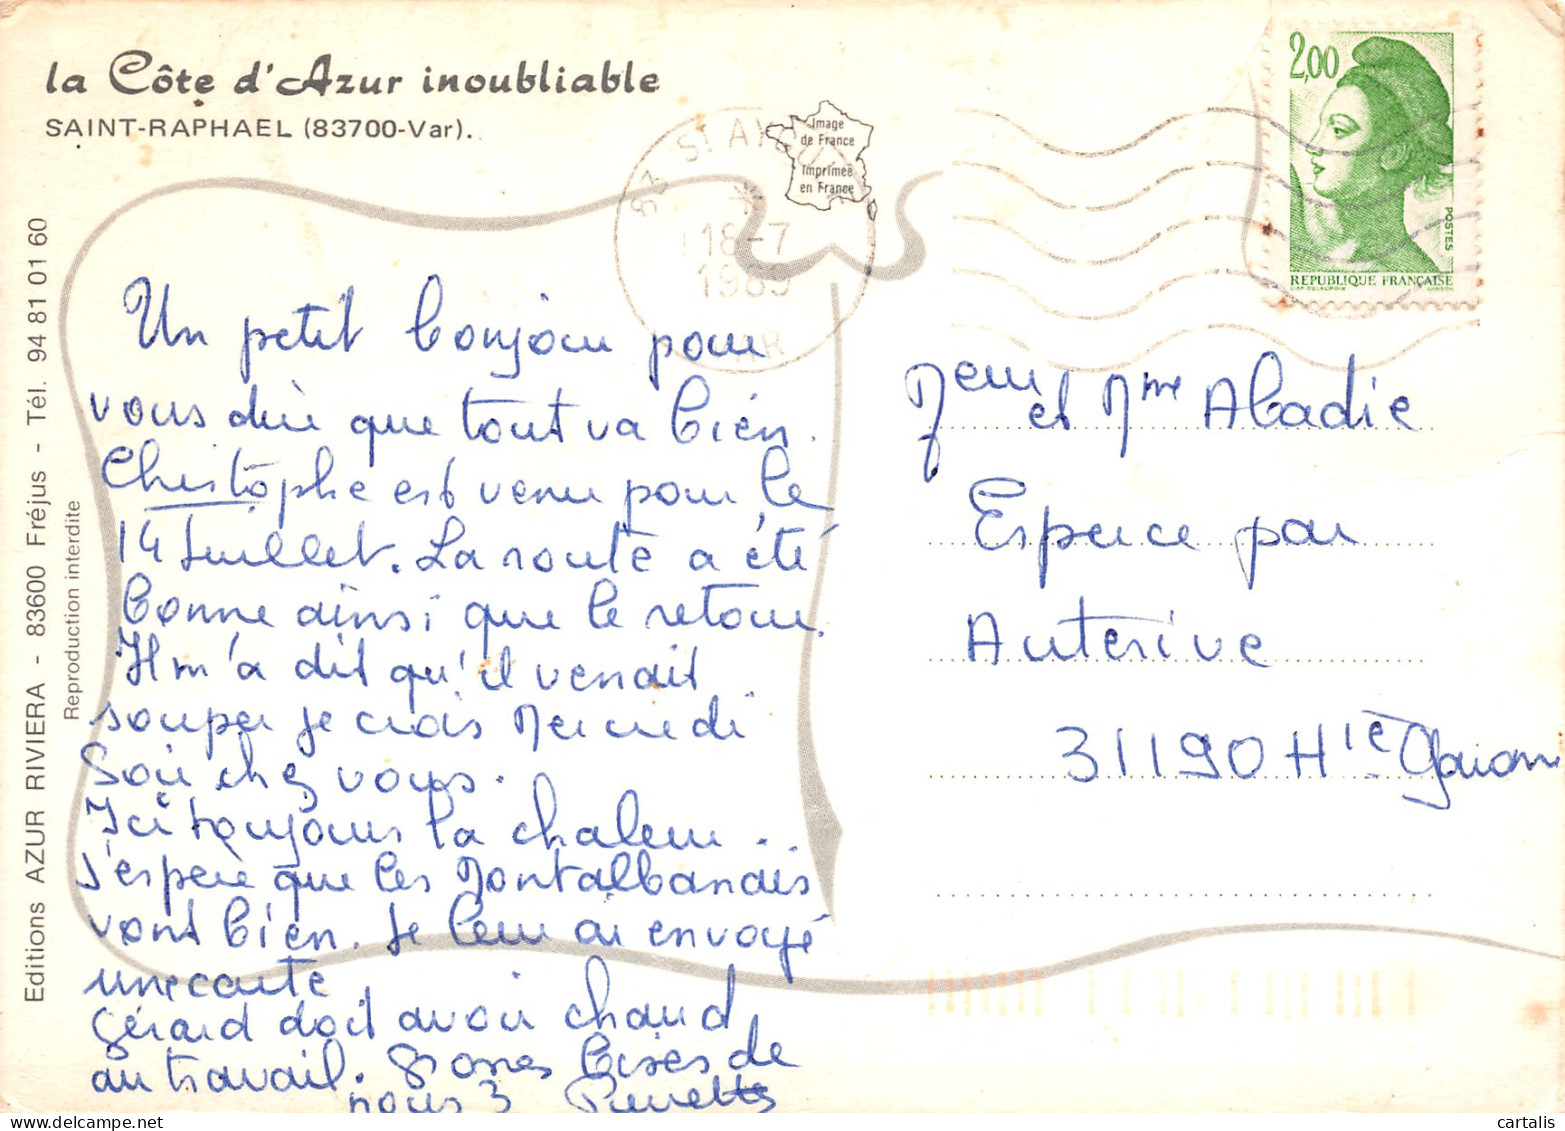 la Côte d'Azur inoubliable
SAINT-RAPHAEL (83700-Var).
Image
de France
imprimée
en France
83 St AYGU
18-7
1989
VAR
2,00
POSTES
REPUBLIQUE FRANÇAISE
Editions AZUR RIVIERA - 83600 Fréjus - Tél. 94 81 01 60
Reproduction interdite
Un petit bonjour pour
vous dire que tout va bien.
Christophe est venu pour le
14 Juillet. La route a été
bonne ainsi que le retour.
Il m'a dit qu'il venait
souper je crois Mercredi
Soir chez vous.
Ici toujours la chaleur ..
J'espère que les Montalbanais
vont bien. Je leur ai envoyé
une carte
Gérard doit avoir chaud
au travail. Grosses bises de
nous 3 Pierrette
Meur et Mme Abadie
Esperce par
Auterive
31190 Hte Garonne
cartalis